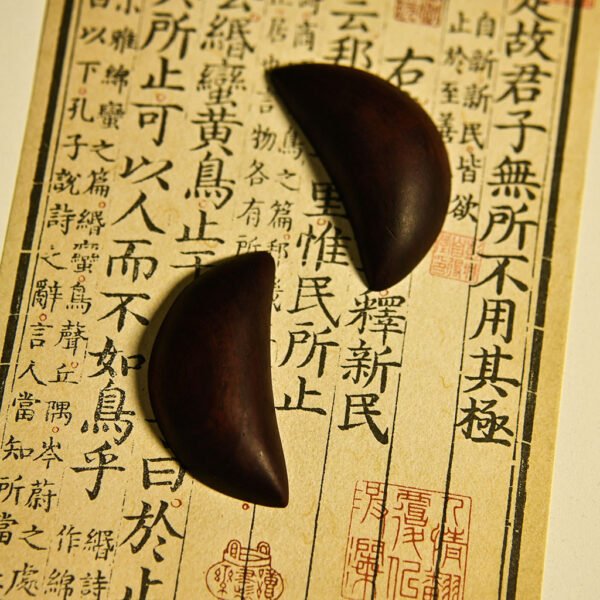 是故君子無所不用其極
自新新民皆欲
止於至善
右
釋新民
云邦
里惟民所止
商
鳥之篇邦
居
言物各有所
云緡蠻黃鳥止于
曰於止
其所止可以人而不如鳥乎
緡詩
作綿
小雅綿蠻之篇緡蠻鳥聲丘隅岑蔚之
以下孔子說詩之辭言人當知所當
處